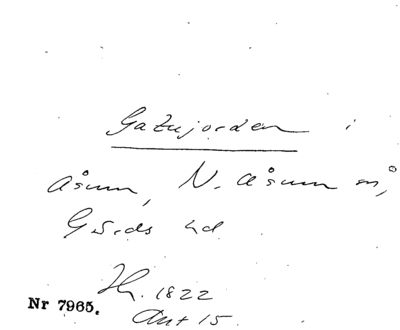 Gatujorden i
Åsum, N. Åsum sn,
Gärds hd
Hr. 1822
Akt 15
Nr 7965.